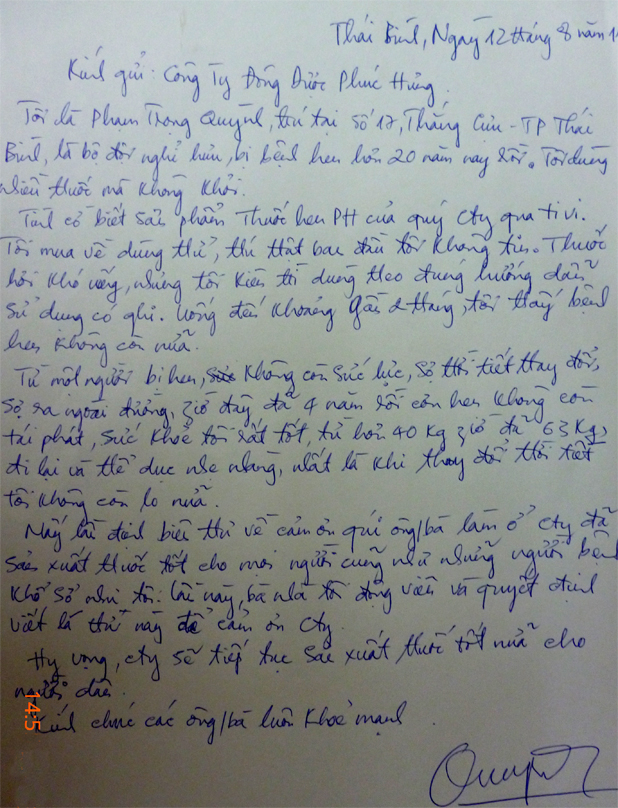 Thái Bình, Ngày 12 tháng 8 năm 1
Kính gửi: Công Ty Đông Dược Phúc Hưng.
Tôi là Phạm Trọng Quỳnh, trú tại số 17, Thăng Cựu - TP Thái
Bình, là bộ đội nghỉ hưu, bị bệnh hen hơn 20 năm nay rồi. Tôi dùng
nhiều thuốc mà không khỏi.
Tình cờ biết sản phẩm Thuốc hen PH của quý cty qua ti vi.
Tôi mua về dùng thử, thú thật ban đầu tôi không tin. Thuốc
hơi khó uống, nhưng tôi kiên trì dùng theo đúng hướng dẫn
sử dụng có ghi. Uống đến khoảng gần 2 tháng, tôi thấy bệnh
hen không còn nữa.
Từ một người bị hen, không còn sức lực, sợ thời tiết thay đổi,
sợ ra ngoài đường, giờ đây đã 4 năm rồi cơn hen không còn
tái phát, sức khoẻ tôi rất tốt, từ hơn 40 kg giờ đã 63 kg,
đi lại và thể dục nhẹ nhàng, nhất là khi thay đổi thời tiết
tôi không còn lo nữa.
Mấy lần định biên thư về cảm ơn quí ông/bà làm ở cty đã
sản xuất thuốc tốt cho mọi người cũng như những người bệnh
khổ sở như tôi. Lần này, bà nhà tôi động viên và quyết định
viết lá thư này để cảm ơn cty.
Hy vọng, cty sẽ tiếp tục sản xuất thuốc tốt nữa cho
người dân.
Kính chúc các ông/bà luôn khoẻ mạnh.
14:5